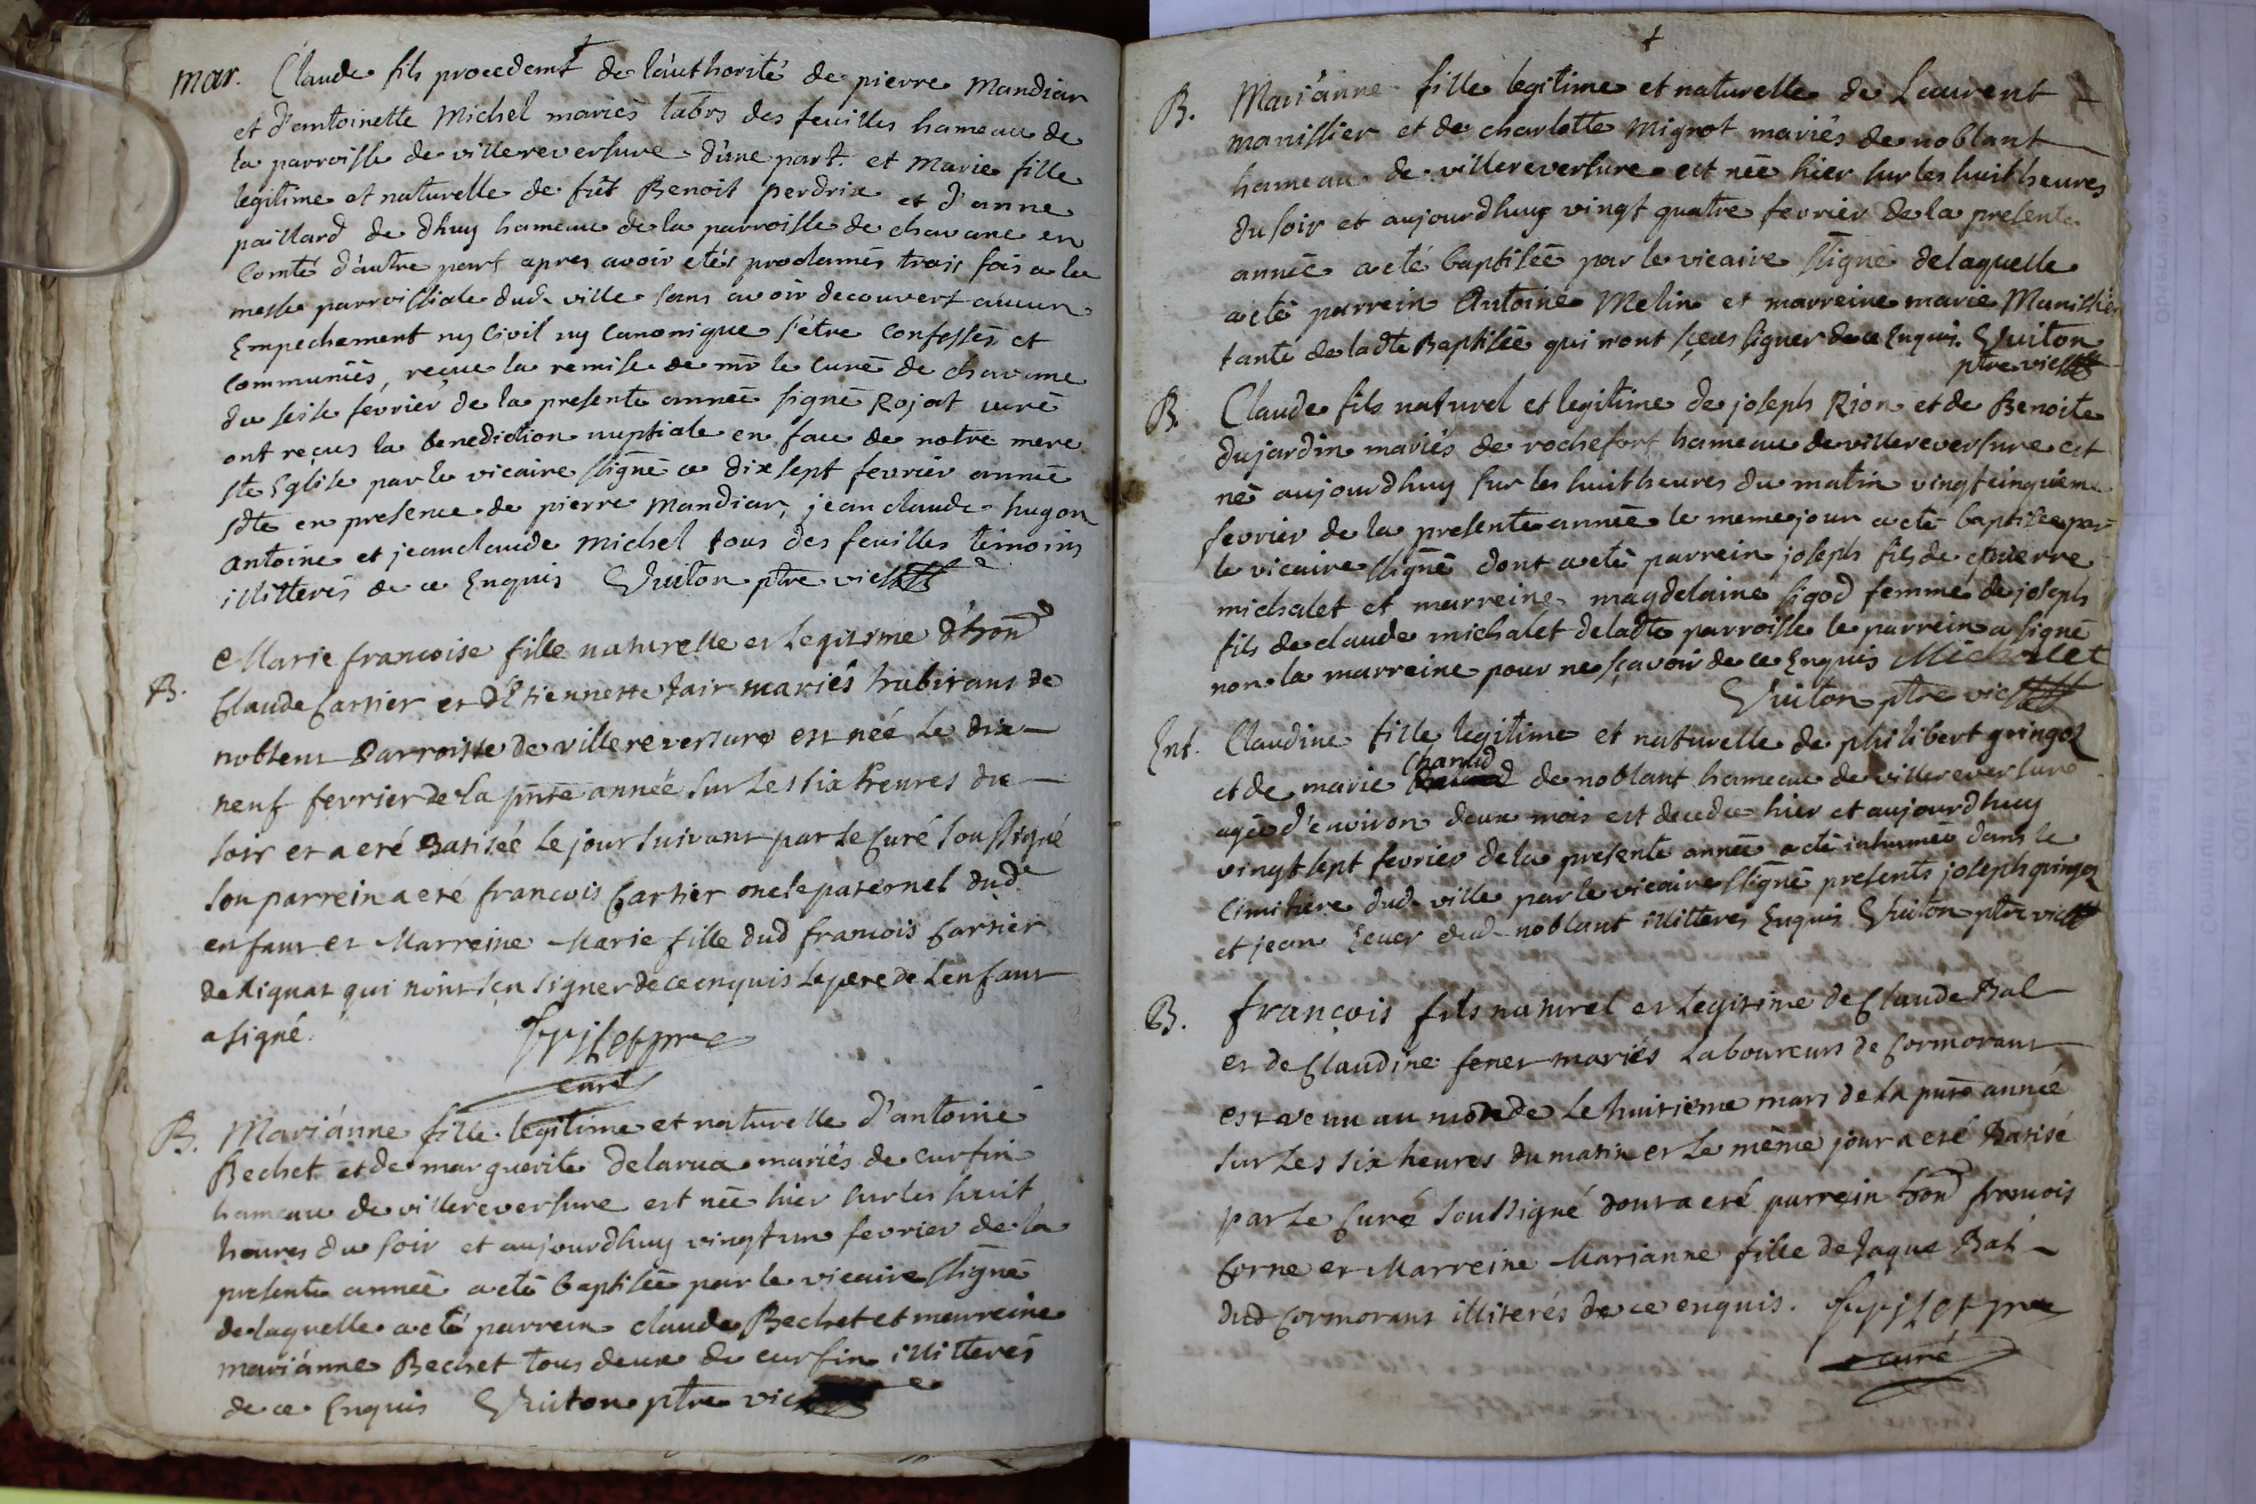 mar. Claude fils procedant de láuthorité de pierre Mandiar
et d'antoinette Michel mariés labrs des feuilles hameau de
la parroisse de villereversure d'une part. et Marie fille
legitime et naturelle de fût Benoit perdrix et d'anne
paillard de dhuy hameau de la parroisse de chavane en
Comté d'autre part apres avoir etés proclamés trois fois a la
messe parroissiale dud. ville sans avoir decouvert aucun
Empechement ny Civil ny Canonique s'être Confessés et
Communiés, reçue la remise de mr le Curé de chavane
du seise fevrier de la presente année signé Rojat curé
ont reçus la benediction nuptiale en face de notre mere
ste Eglise par le vicaire ssigné ce dix sept fevrier année
sdte en presence de pierre Mandiar, jean claude hugon
Antoine et jean claude Michel tous des feuilles témoins
illitterés de ce Enquis Guiton ptre vic
B. Marie francoise fille naturelle et Legitime d'hond
Claude Cartier et d'Etiennette Jair mariés habitans de
noblent Parroisse de villereversure est née Le dix
neuf fevrier de la pnte année sur Les six heures du
soir et a eté Batisée Le jour suivant par Le Curé soussigné
son parrein a eté francois Cartier oncle paternel dud
enfant et Marreine Marie fille dud francois Cartier
de Rignat qui n'ont sçu signer de ce enquis Le pere de L'enfant
a signé.
curé
B. Mariánne fille legitime et naturelle d'antoine
Bechet et de marguerite delarua mariés de curfin
hameau de villereversure est née hier sur les huit
heures du soir et aujourdhuy vingt un fevrier de la
presente année a eté baptisée par le vicaire ssigné
de laquelle a eté parrein claude Bechet et marreine
mariánne Bechet tous deux de curfin illitterés
de ce Enquis Guiton ptre vic
B. Mariánne fille legitime et naturelle de Laurent
manissier et de charlotte Mignot mariés de noblant
hameau de villereversure est née hier sur les huit heures
du soir et aujourdhuy vingt quatre fevrier de la presente
année a eté baptisée par le vicaire ssigné de laquelle
a eté parrein Antoine Melin et marreine marie Manissier
tante de ladte Baptisée qui n'ont sçeus signer de ce Enquis. Guiton
ptre vic
B. Claude fils naturel et legitime de joseph Rion et de Benoite
dujardin mariés de rochefort hameau de villereversure est
né aujourdhuy sur les huit heures du matin vingt cinquiéme
fevrier de la presente année le meme jour a eté baptisée par
le vicaire ssigné dont a eté parrein joseph fils de pierre
michalet et marreine magdelaine sigod femme de joseph
fils de claude michalet de ladte parroisse le parrein a signé
non la marreine pour ne sçavoir de ce Enquis Michalet
Guiton ptre vic
Ent. Claudine fille legitime et naturelle de philibert gringoz
et de marie Chanud de noblant hameau de villereversure
agée d'environ deux mois est decedée hier et aujourdhuy
vingt sept fevrier de la presente année a eté inhumée dans le
Cimitiere dud. ville par le vicaire ssigné presents joseph gringoz
et jean dud. noblant illitteres Enquis Guiton ptre vic
B. françois fils naturel et Legitime de Claude Bal
et de Claudine fenet mariés Laboureurs de Cormorant
est venu au monde Le huitieme mars de la pnte année
sur Les six heures du matin et Le même jour a eté Batisé
par Le Curé soussigné dont a eté parrein hond francois
Corne et Marreine Marianne fille de Jaque Bal
dud Cormorant illiterés de ce enquis.
curé